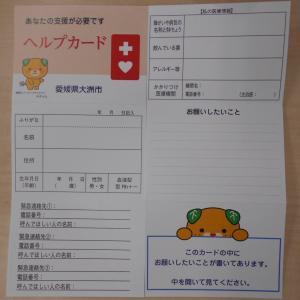 あなたの支援が必要です
ヘルプカード
愛媛県大洲市
年　月　日記入
ふりがな
名前
住所
生年月日
(年齢)
年　月　日
(　歳)
性別
男・女
血液型
型 Rh+-
緊急連絡先①:
電話番号:
呼んでほしい人の名前:
緊急連絡先②:
電話番号:
呼んでほしい人の名前:
緊急連絡先③:
電話番号:
呼んでほしい人の名前:
【私の医療情報】
障がいや病気の
名称と特ちょう
飲んでいる薬
アレルギー等
かかりつけ
医療機関
機関名:
電話番号:　(主治医:　)
お願いしたいこと
このカードの中に
お願いしたいことが書いてあります。
中を開いて見てください。